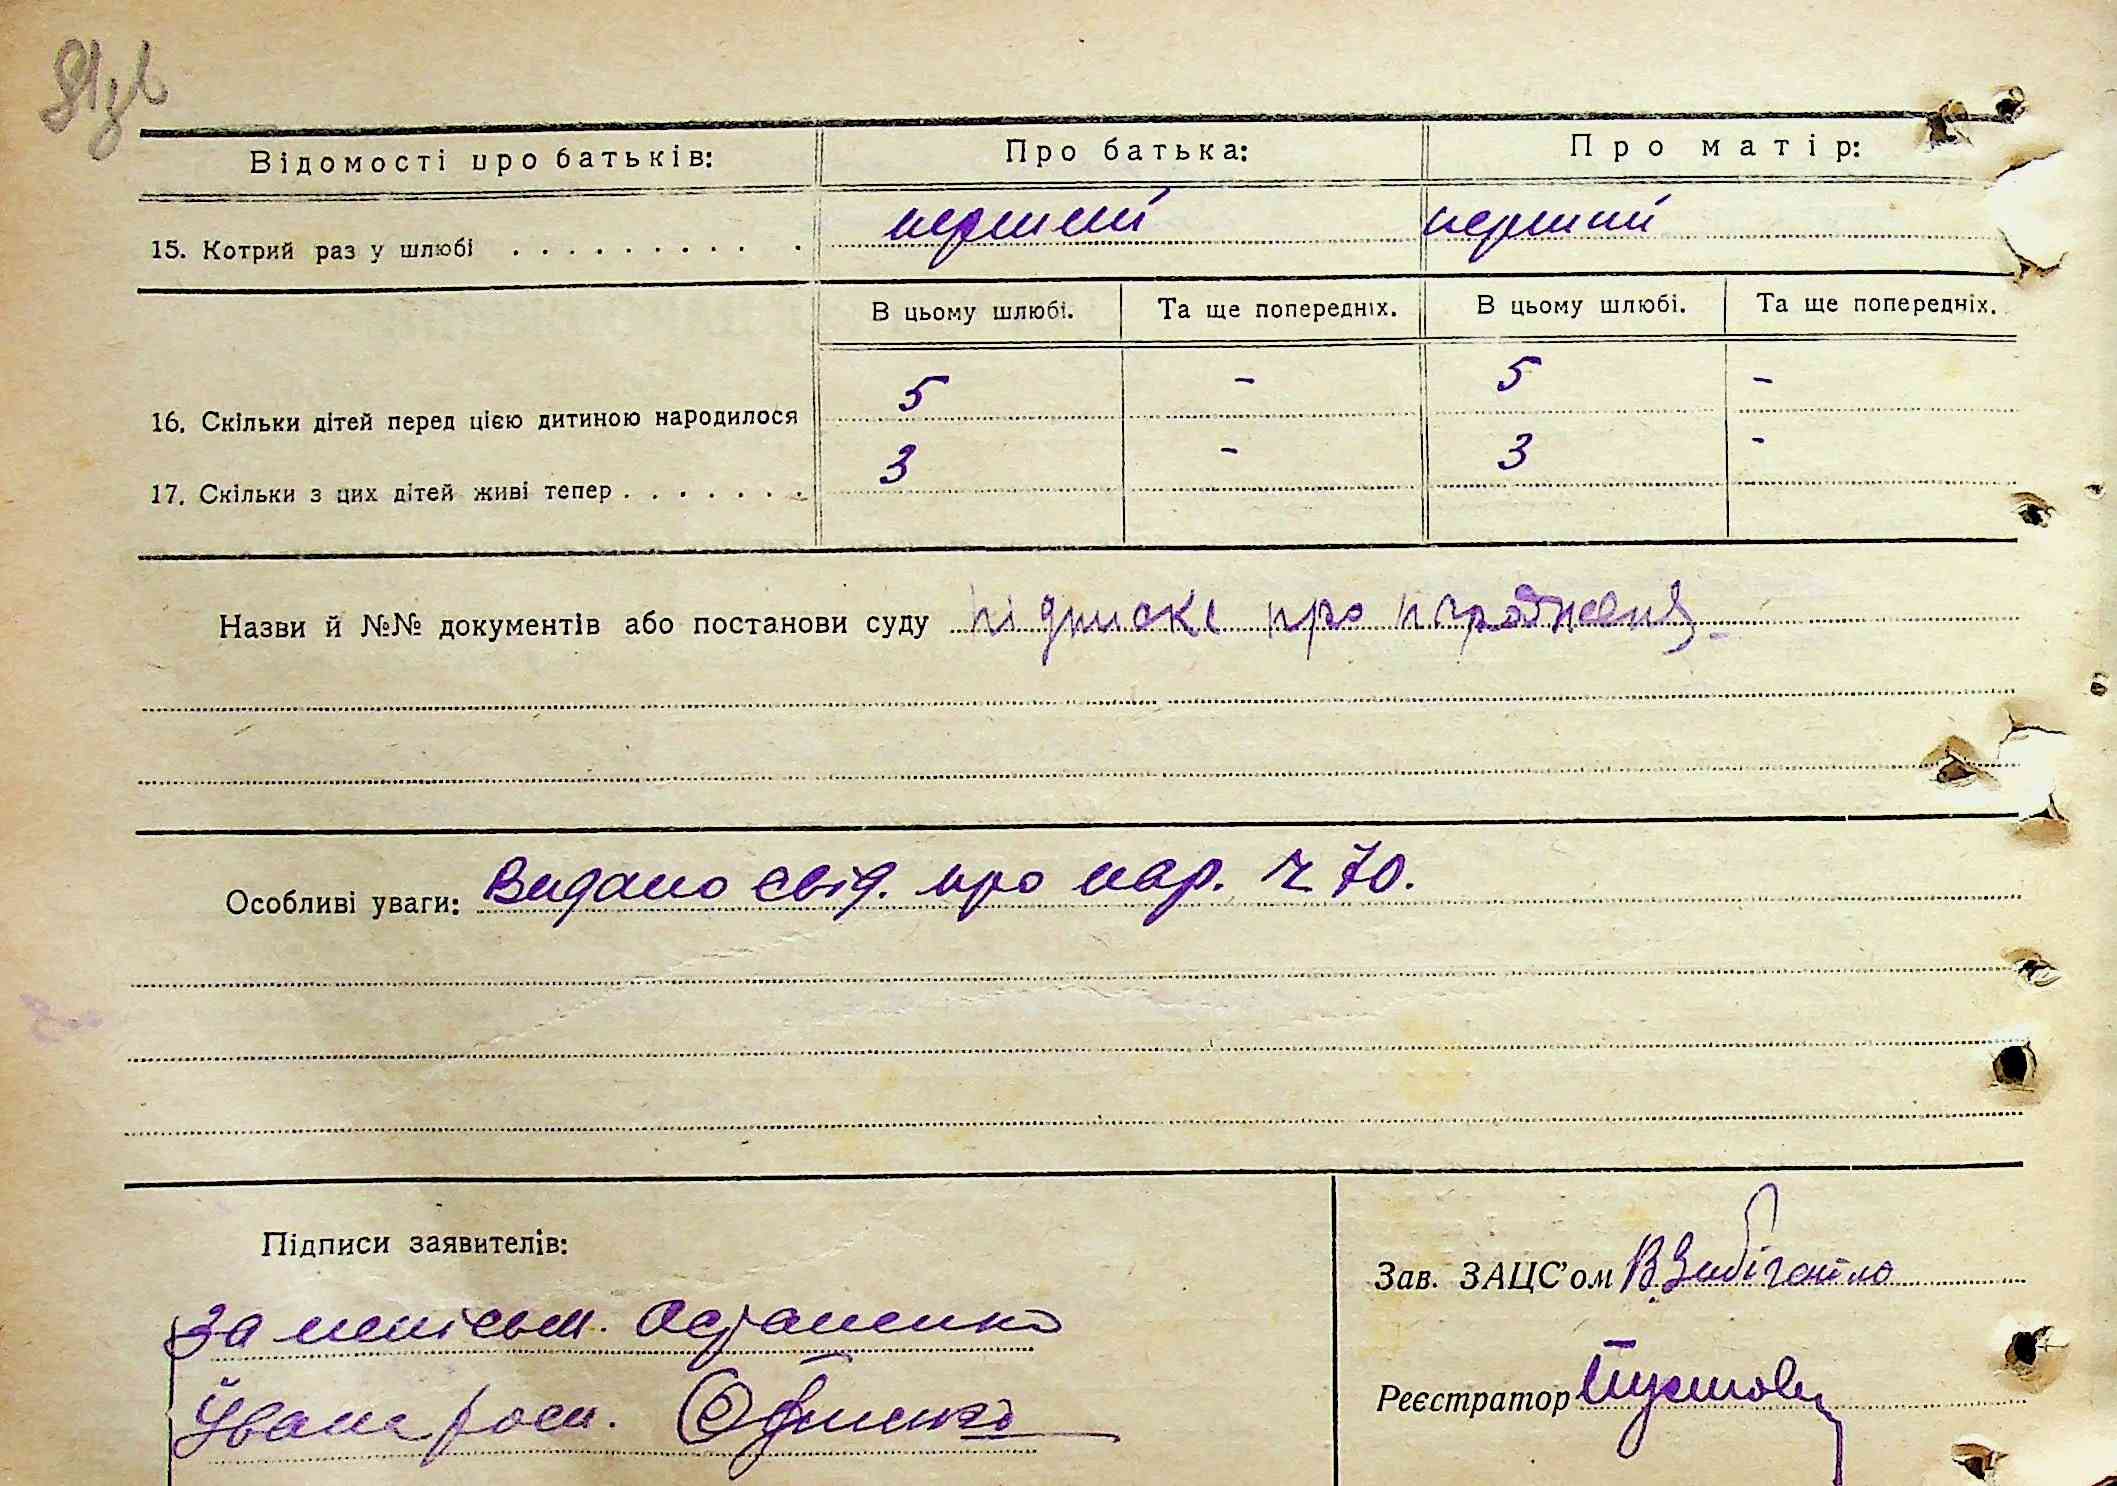 Відомості про батьків: Про батька: Про матір:
15. Котрий раз у шлюбі . . . . . . . . . . . перший перший
В цьому шлюбі. Та ще попередніх. В цьому шлюбі. Та ще попередніх.
16. Скільки дітей перед цією дитиною народилося 5 - 5 -
17. Скільки з цих дітей живі тепер . . . . . . . 3 - 3 -
Назви й №№ документів або постанови суду підписка про народження
Особливі уваги: Видано свід. про нар. ч 70.
Підписи заявителів:
Зав. ЗАЦС'ом
за неписьм.
Реєстратор
Івана росп.